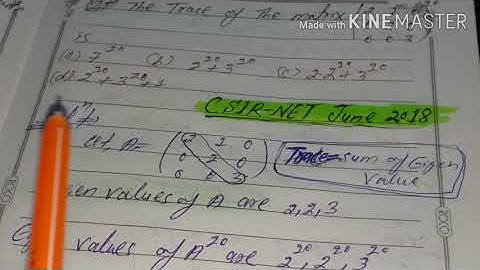 Made with KINEMASTER
The Trace of the matrix
is
(a) 7^20 (b) 2^20+3^20 (c) 2·2^20+3^20
(d) 2^20+3^20+1
CSIR-NET June 2018
Let, A= (2 1 0
0 2 0
0 0 3)
Trace=sum of Eigen
value
values of A are 2,2,3
values of A^20 are 2^20, 2^20, 3^20